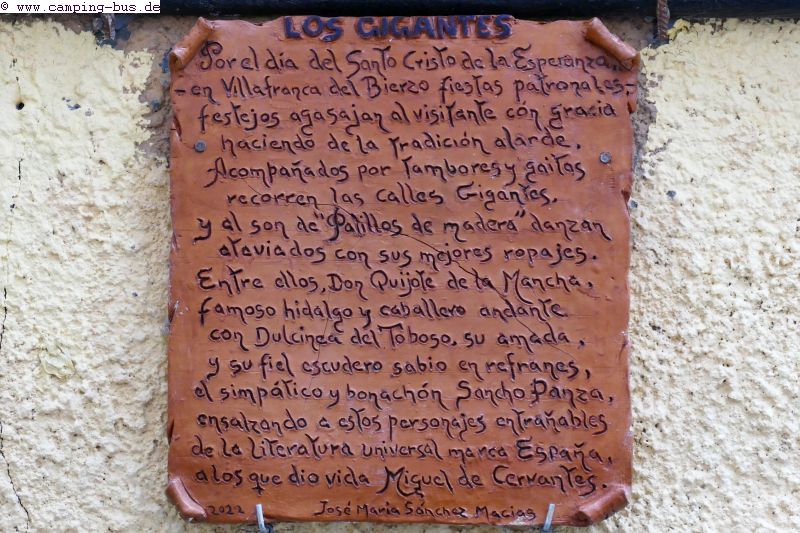 © www.camping-bus.de
LOS GIGANTES
Por el día del Santo Cristo de la Esperanza,
- en Villafranca del Bierzo fiestas patronales -
festejos agasajan al visitante con gracia
haciendo de la tradición alarde.
Acompañados por tambores y gaitas
recorren las calles Gigantes,
y al son de "Palillos de madera" danzan
ataviados con sus mejores ropajes.
Entre ellos, Don Quijote de la Mancha,
famoso hidalgo y caballero andante
con Dulcinea del Toboso, su amada,
y su fiel escudero sabio en refranes,
el simpático y bonachón Sancho Panza,
ensalzando a estos personajes entrañables
de la literatura universal marca España,
a los que dio vida Miguel de Cervantes.
2022 José María Sánchez Macías